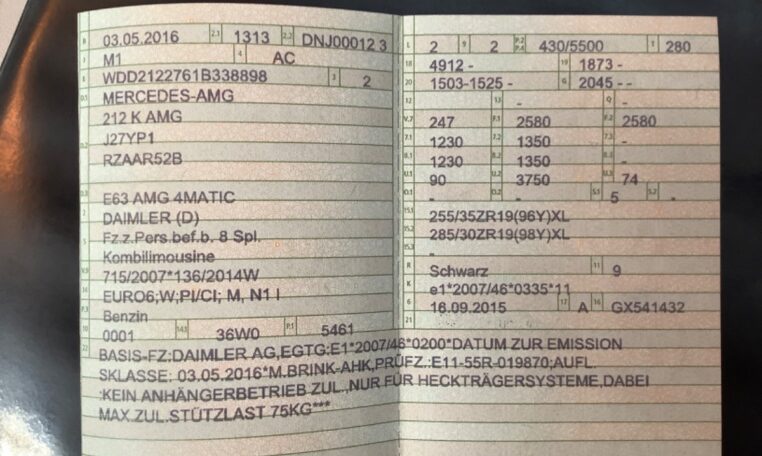 B 03.05.2016 2.1 1313 2.2 DNJ00012 3
J M1 4 AC
E WDD2122761B338898 3 2
D.1 MERCEDES-AMG
212 K AMG
D.2 J27YP1
RZAAR52B
D.3 E63 AMG 4MATIC
2 DAIMLER (D)
5 Fz.z.Pers.bef.b. 8 Spl.
Kombilimousine
V.9 715/2007*136/2014W
14 EURO6;W;PI/CI; M, N1 I
P.3 Benzin
10 0001 14.1 36W0 P.1 5461
L 2 9 2 P.2 P.4 430/5500 T 280
18 4912 - 19 1873 -
20 1503-1525 - G 2045 - -
12 - 13 - Q -
V.7 247 F.1 2580 F.2 2580
7.1 1230 7.2 1350 7.3 -
8.1 1230 8.2 1350 8.3 -
U.1 90 U.2 3750 U.3 74
O.1 - O.2 - S.1 5 S.2 -
15.1 255/35ZR19(96Y)XL
15.2 285/30ZR19(98Y)XL
15.3 -
R Schwarz 11 9
K e1*2007/46*0335*11
6 16.09.2015 17 A 16 GX541432
21
22 BASIS-FZ:DAIMLER AG,EGTG:E1*2007/46*0200*DATUM ZUR EMISSION
SKLASSE: 03.05.2016*M.BRINK-AHK,PRÜFZ.:E11-55R-019870;AUFL.
:KEIN ANHÄNGERBETRIEB ZUL.,NUR FÜR HECKTRÄGERSYSTEME,DABEI
MAX.ZUL.STÜTZLAST 75KG***